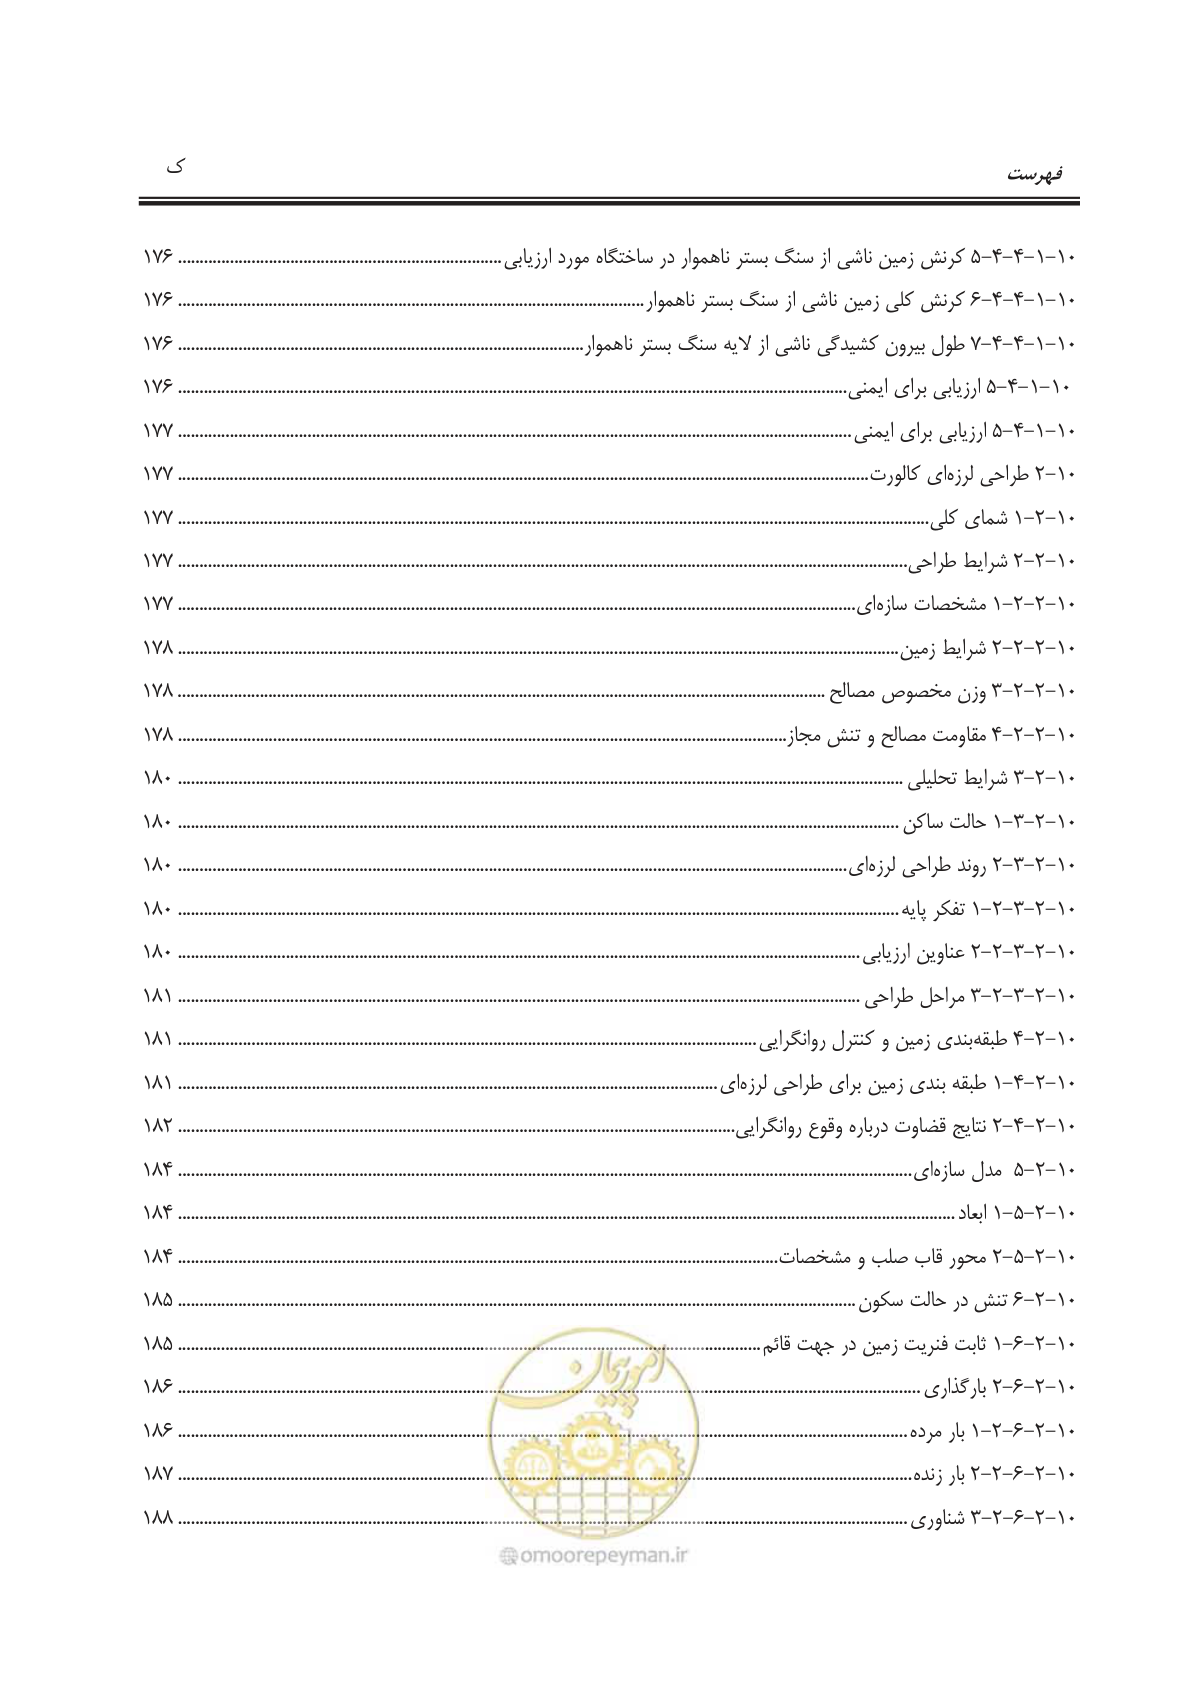 فهرست
ک
۱۰-۱-۴-۴-۵ کرنش زمین ناشی از سنگ بستر ناهموار در ساختگاه مورد ارزیابی ........ ۱۷۶
۱۰-۱-۴-۴-۶ کرنش کلی زمین ناشی از سنگ بستر ناهموار ........ ۱۷۶
۱۰-۱-۴-۴-۷ طول بیرون کشیدگی ناشی از لایه سنگ بستر ناهموار ........ ۱۷۶
۱۰-۱-۴-۵ ارزیابی برای ایمنی ........ ۱۷۶
۱۰-۱-۴-۵ ارزیابی برای ایمنی ........ ۱۷۷
۱۰-۲ طراحی لرزه‌ای کالورت ........ ۱۷۷
۱۰-۲-۱ شمای کلی ........ ۱۷۷
۱۰-۲-۲ شرایط طراحی ........ ۱۷۷
۱۰-۲-۲-۱ مشخصات سازه‌ای ........ ۱۷۷
۱۰-۲-۲-۲ شرایط زمین ........ ۱۷۸
۱۰-۲-۲-۳ وزن مخصوص مصالح ........ ۱۷۸
۱۰-۲-۲-۴ مقاومت مصالح و تنش مجاز ........ ۱۷۸
۱۰-۲-۳ شرایط تحلیلی ........ ۱۸۰
۱۰-۲-۳-۱ حالت ساکن ........ ۱۸۰
۱۰-۲-۳-۲ روند طراحی لرزه‌ای ........ ۱۸۰
۱۰-۲-۳-۲-۱ تفکر پایه ........ ۱۸۰
۱۰-۲-۳-۲-۲ عناوین ارزیابی ........ ۱۸۰
۱۰-۲-۳-۲-۳ مراحل طراحی ........ ۱۸۱
۱۰-۲-۴ طبقه‌بندی زمین و کنترل روانگرایی ........ ۱۸۱
۱۰-۲-۴-۱ طبقه بندی زمین برای طراحی لرزه‌ای ........ ۱۸۱
۱۰-۲-۴-۲ نتایج قضاوت درباره وقوع روانگرایی ........ ۱۸۲
۱۰-۲-۵ مدل سازه‌ای ........ ۱۸۴
۱۰-۲-۵-۱ ابعاد ........ ۱۸۴
۱۰-۲-۵-۲ محور قاب صلب و مشخصات ........ ۱۸۴
۱۰-۲-۶ تنش در حالت سکون ........ ۱۸۵
۱۰-۲-۶-۱ ثابت فنریت زمین در جهت قائم ........ ۱۸۵
۱۰-۲-۶-۲ بارگذاری ........ ۱۸۶
۱۰-۲-۶-۲-۱ بار مرده ........ ۱۸۶
۱۰-۲-۶-۲-۲ بار زنده ........ ۱۸۷
۱۰-۲-۶-۲-۳ شناوری ........ ۱۸۸
امورپیمان
@omoorepeyman.ir